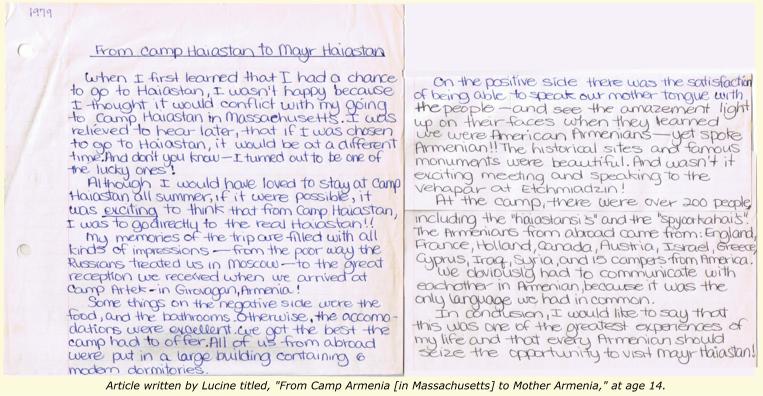 1979
From Camp Haiastan to Mayr Haiastan
When I first learned that I had a chance
to go to Haiastan, I wasn't happy because
I thought it would conflict with my going
to Camp Haiastan in Massachusetts. I was
relieved to hear later, that if I was chosen
to go to Haiastan, it would be at a different
time. And don't you know - I turned out to be one of
the lucky ones!
Although I would have loved to stay at Camp
Haiastan all summer, if it were possible, it
was exciting to think that from Camp Haiastan,
I was to go directly to the real Haiastan!!
My memories of the trip are filled with all
kinds of impressions - from the poor way the
Russians treated us in Moscow - to the great
reception we received when we arrived at
Camp Artek - in Girovagan, Armenia!
Some things on the negative side were the
food, and the bathrooms. Otherwise, the accomo-
dations were excellent. We got the best the
camp had to offer. All of us from abroad
were put in a large building containing 6
modern dormitories.
On the positive side there was the satisfaction
of being able to speak our mother tongue with
the people - and see the amazement light
up on their faces when they learned
we were American Armenians - yet spoke
Armenian!! The historical sites and famous
monuments were beautiful. And wasn't it
exciting meeting and speaking to the
Vehapar at Etchmiadzin!
At the camp, there were over 200 people,
including the "haiastansi's" and the "spyoorkahais".
The Armenians from abroad came from: England,
France, Holland, Canada, Austria, Israel, Greece,
Cyprus, Iraq, Syria, and 15 campers from America.
We obviously had to communicate with
eachother in Armenian, because it was the
only language we had in common.
In conclusion, I would like to say that
this was one of the greatest experiences of
my life and that every Armenian should
seize the opportunity to visit mayr Haiastan!
Article written by Lucine titled, "From Camp Armenia [in Massachusetts] to Mother Armenia," at age 14.